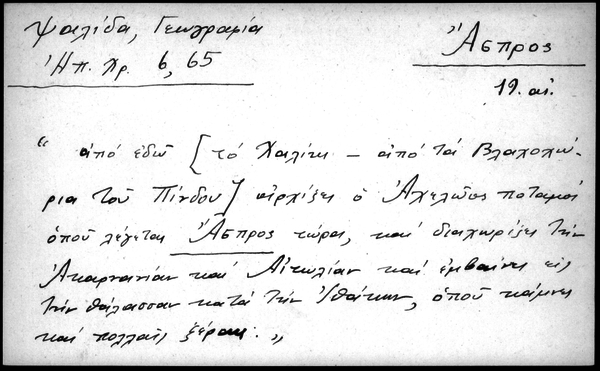 Ψαλίδα, Γεωγραφία
Ἠπ. Χρ. 6, 65
Ἄσπρος
19. αἰ.
“ ἀπό ἐδῶ [τό Χαλίκι – ἀπό τά Βλαχοχώ-
ρια τοῦ Πίνδου] ἀρχίζει ὁ Ἀχελῶος ποταμός
ὁποῦ λέγεται Ἄσπρος τώρα, καί διαχωρίζει τήν
Ἀκαρνανίαν καί Αἰτωλίαν καί ἐμβαίνει εἰς
τήν θάλασσαν κατά τήν Ἰθάκην, ὁποῦ κάμνει
καί πολλαῖς ξέραις. „